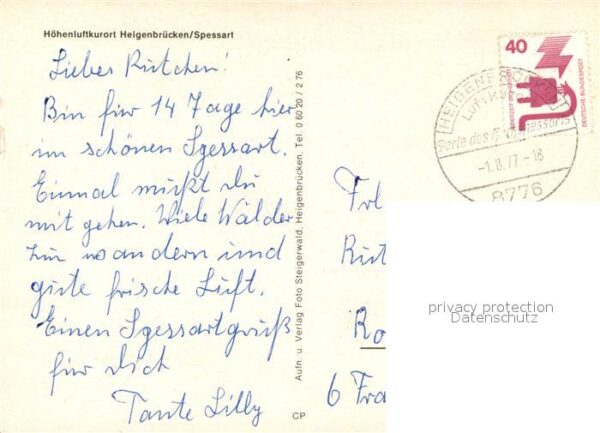 Höhenluftkurort Heigenbrücken/Spessart
Liebes Rutchen!
Bin für 14 Tage hier
im schönen Spessart.
Einmal mußt du
mit gehen. Viele Wälder
zum wandern und
gute frische Luft.
Einen Spessartgruß
für Dich
Tante Lilly
Aufn. u. Verlag Foto Steigerwald, Heigenbrücken. Tel. 0 60 20 / 2 76
CP
40
DEUTSCHE BUNDESPOST
HEIGENBRÜCKEN
LUFTKURORT
Perle des Spessarts
-1.8.77-18
8776
Frl
Rut
Ro
6 Fra
privacy protection
Datenschutz